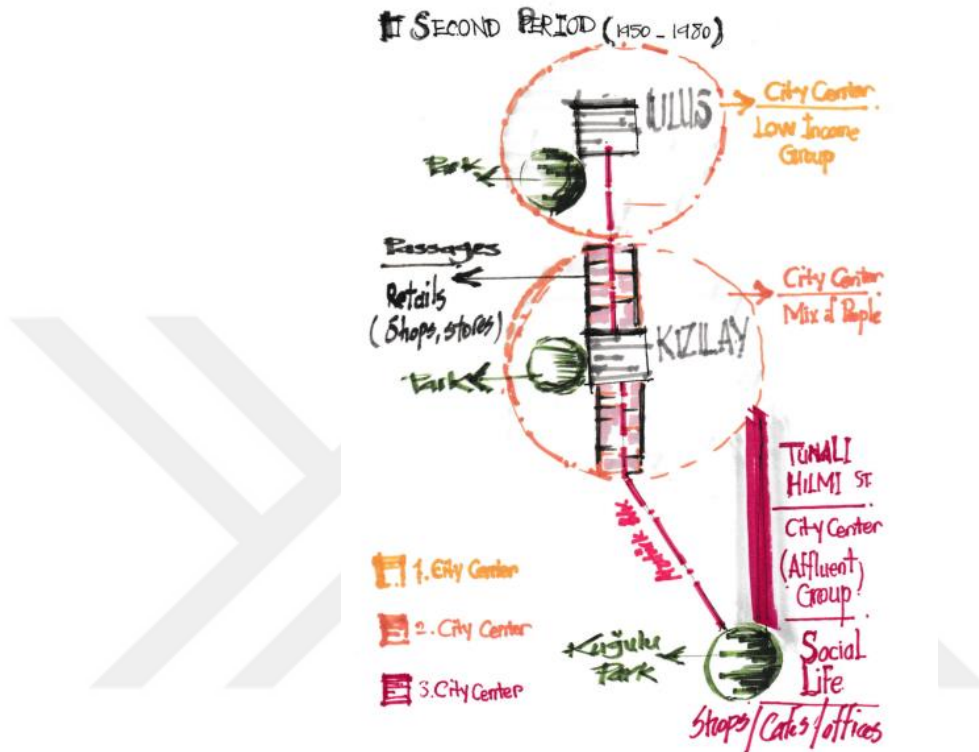 II SECOND PERIOD (1950 - 1980)
ULUS
City Center
Low Income
Group
Park
Passages
Retails
(Shops, stores)
City Center
Mix of People
KIZILAY
Park
TUNALI
HILMI ST.
City Center
(Affluent)
Group
Social
Life
Shops/Cafes/offices
1. City Center
2. City Center
3. City Center
Kuğulu
Park